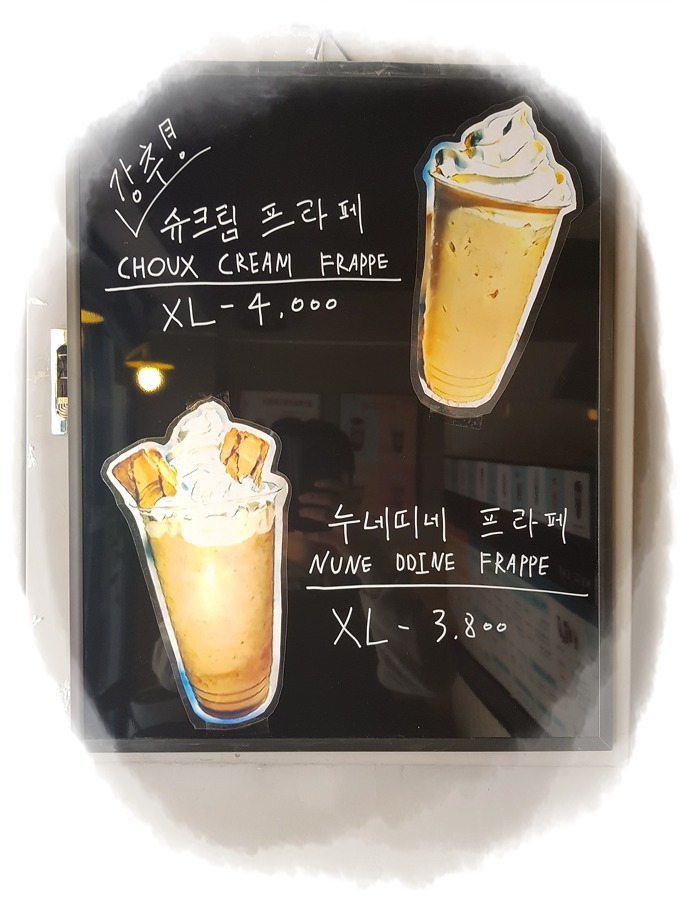 강추!
슈크림 프라페
CHOUX CREAM FRAPPE
XL - 4.000
누네띠네 프라페
NUNE DDINE FRAPPE
XL - 3.800